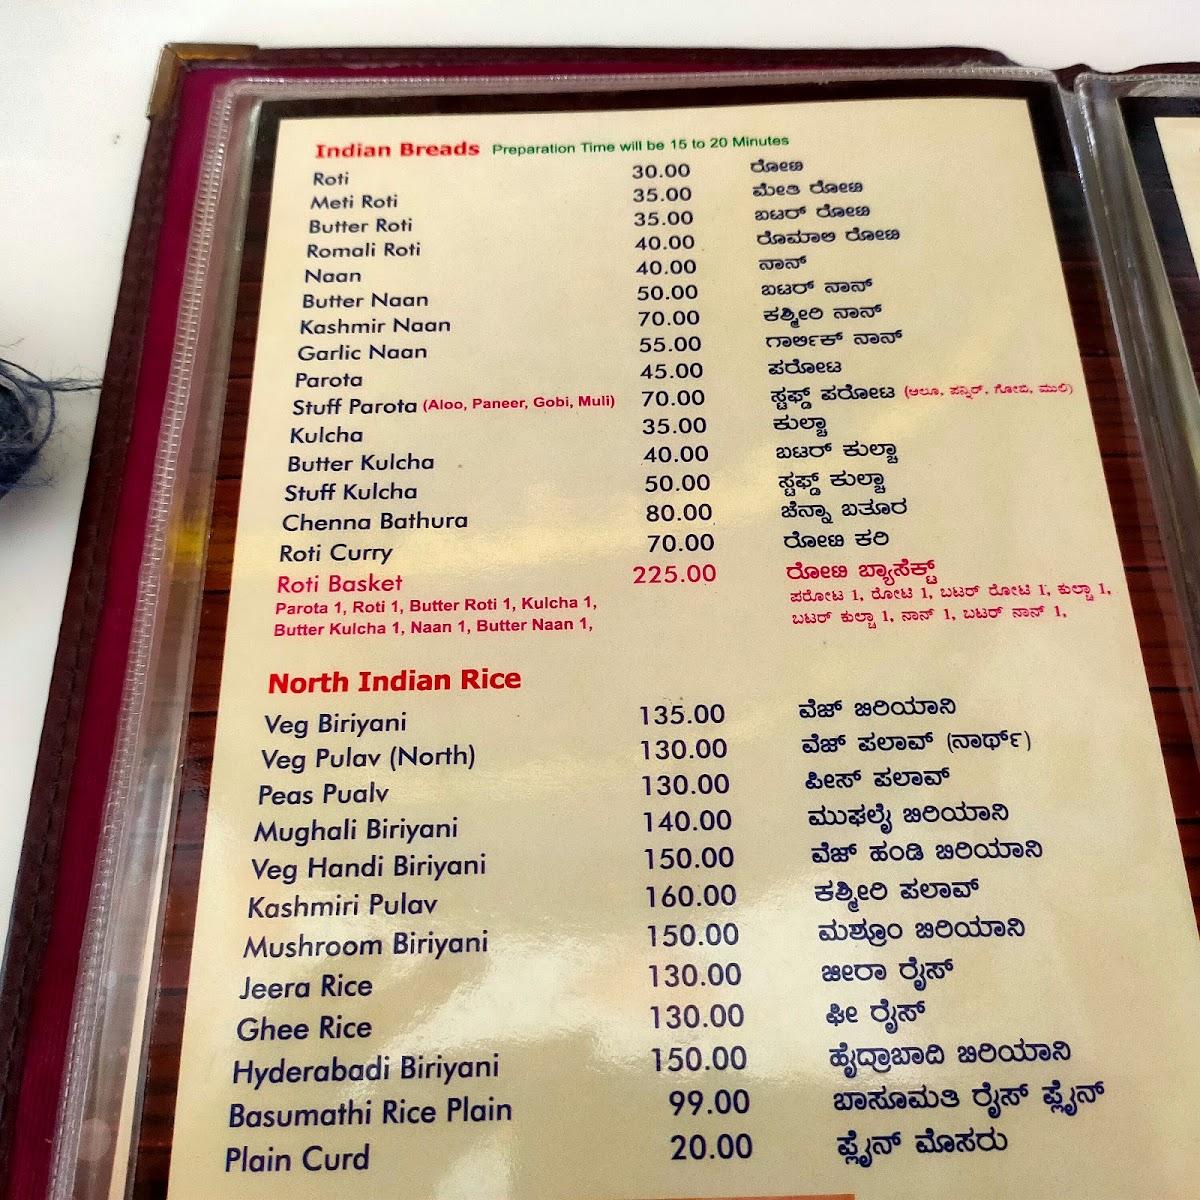 Indian Breads Preparation Time will be 15 to 20 Minutes
Roti 30.00 ರೋಟಿ
Meti Roti 35.00 ಮೇತಿ ರೋಟಿ
Butter Roti 35.00 ಬಟರ್ ರೋಟಿ
Romali Roti 40.00 ರೊಮಾಲಿ ರೋಟಿ
Naan 40.00 ನಾನ್
Butter Naan 50.00 ಬಟರ್ ನಾನ್
Kashmir Naan 70.00 ಕಶ್ಮೀರಿ ನಾನ್
Garlic Naan 55.00 ಗಾರ್ಲಿಕ್ ನಾನ್
Parota 45.00 ಪರೋಟ
Stuff Parota (Aloo, Paneer, Gobi, Muli) 70.00 ಸ್ಟಫ್ಡ್ ಪರೋಟ (ಆಲೂ, ಪನ್ನಿರ್, ಗೋಬಿ, ಮುಲಿ)
Kulcha 35.00 ಕುಲ್ಚಾ
Butter Kulcha 40.00 ಬಟರ್ ಕುಲ್ಚಾ
Stuff Kulcha 50.00 ಸ್ಟಫ್ಡ್ ಕುಲ್ಚಾ
Chenna Bathura 80.00 ಚೆನ್ನಾ ಬತೂರ
Roti Curry 70.00 ರೋಟಿ ಕರಿ
Roti Basket 225.00 ರೋಟಿ ಬ್ಯಾಸೆಕ್ಟ್
Parota 1, Roti 1, Butter Roti 1, Kulcha 1, ಪರೋಟ 1, ರೋಟಿ 1, ಬಟರ್ ರೋಟಿ 1, ಕುಲ್ಚಾ 1,
Butter Kulcha 1, Naan 1, Butter Naan 1, ಬಟರ್ ಕುಲ್ಚಾ 1, ನಾನ್ 1, ಬಟರ್ ನಾನ್ 1,
North Indian Rice
Veg Biriyani 135.00 ವೆಜ್ ಬಿರಿಯಾನಿ
Veg Pulav (North) 130.00 ವೆಜ್ ಪಲಾವ್ (ನಾರ್ಥ್)
Peas Pualv 130.00 ಪೀಸ್ ಪಲಾವ್
Mughali Biriyani 140.00 ಮುಘಲೈ ಬಿರಿಯಾನಿ
Veg Handi Biriyani 150.00 ವೆಜ್ ಹಂಡಿ ಬಿರಿಯಾನಿ
Kashmiri Pulav 160.00 ಕಶ್ಮೀರಿ ಪಲಾವ್
Mushroom Biriyani 150.00 ಮಶ್ರೂಂ ಬಿರಿಯಾನಿ
Jeera Rice 130.00 ಜೀರಾ ರೈಸ್
Ghee Rice 130.00 ಘೀ ರೈಸ್
Hyderabadi Biriyani 150.00 ಹೈದ್ರಾಬಾದಿ ಬಿರಿಯಾನಿ
Basumathi Rice Plain 99.00 ಬಾಸೂಮತಿ ರೈಸ್ ಪ್ಲೈನ್
Plain Curd 20.00 ಪ್ಲೈನ್ ಮೊಸರು